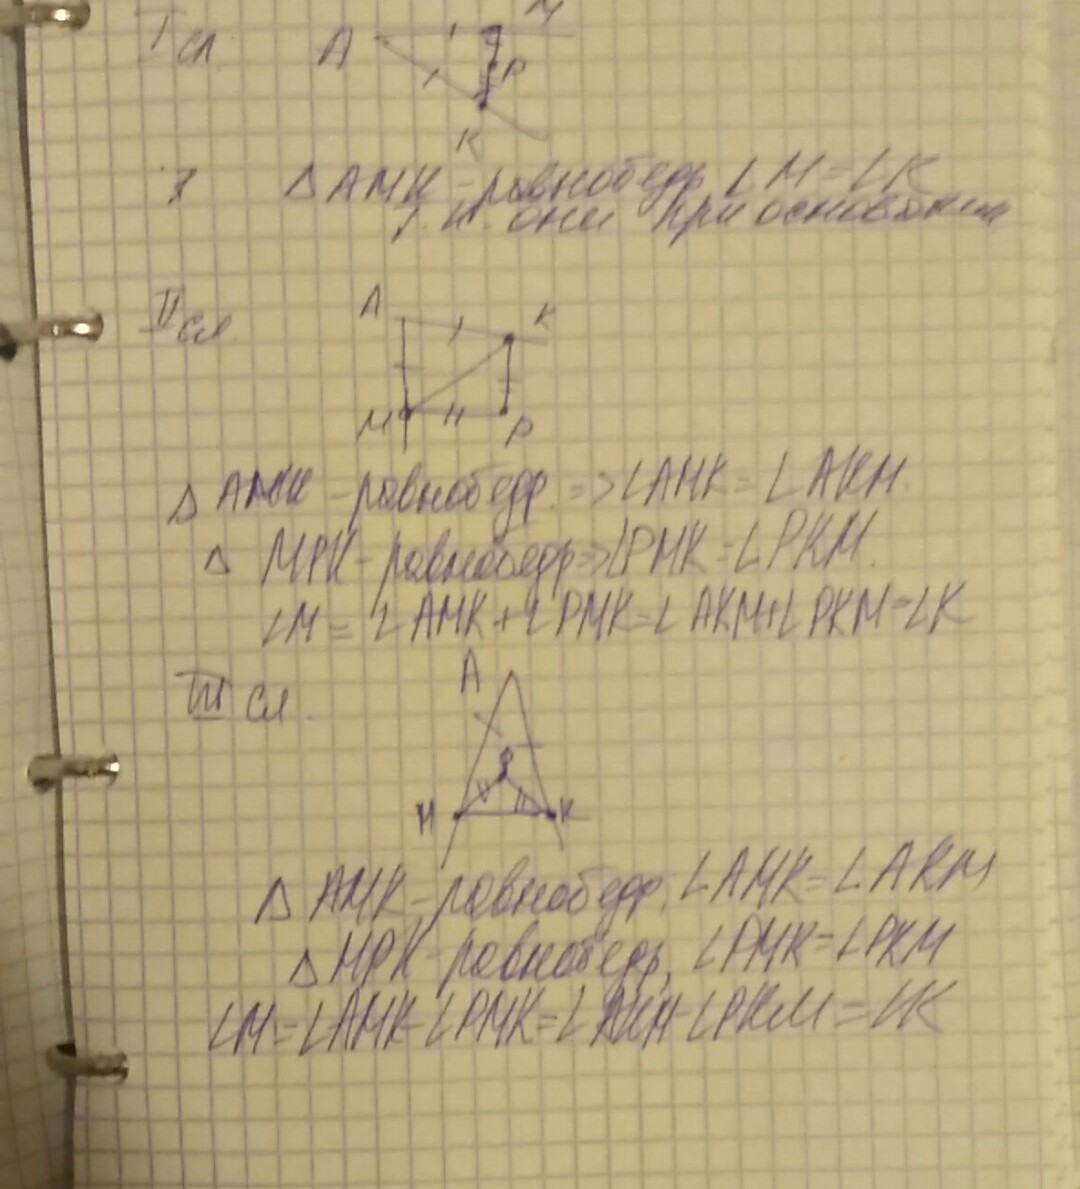 I сл.
A M
P
K
Δ AMK - равнобедр ∠M = ∠K
т. к. они при основании
II сл.
A K
M P
Δ AMK - равнобедр. => ∠AMK = ∠AKM.
Δ MPK - равнобедр => ∠PMK = ∠PKM.
∠M = ∠AMK + ∠PMK = ∠AKM + ∠PKM = ∠K
III сл.
A
P
M K
Δ AMK - равнобедр. ∠AMK = ∠AKM
Δ MPK - равнобедр, ∠PMK = ∠PKM
∠M = ∠AMK - ∠PMK = ∠AKM - ∠PKM = ∠K